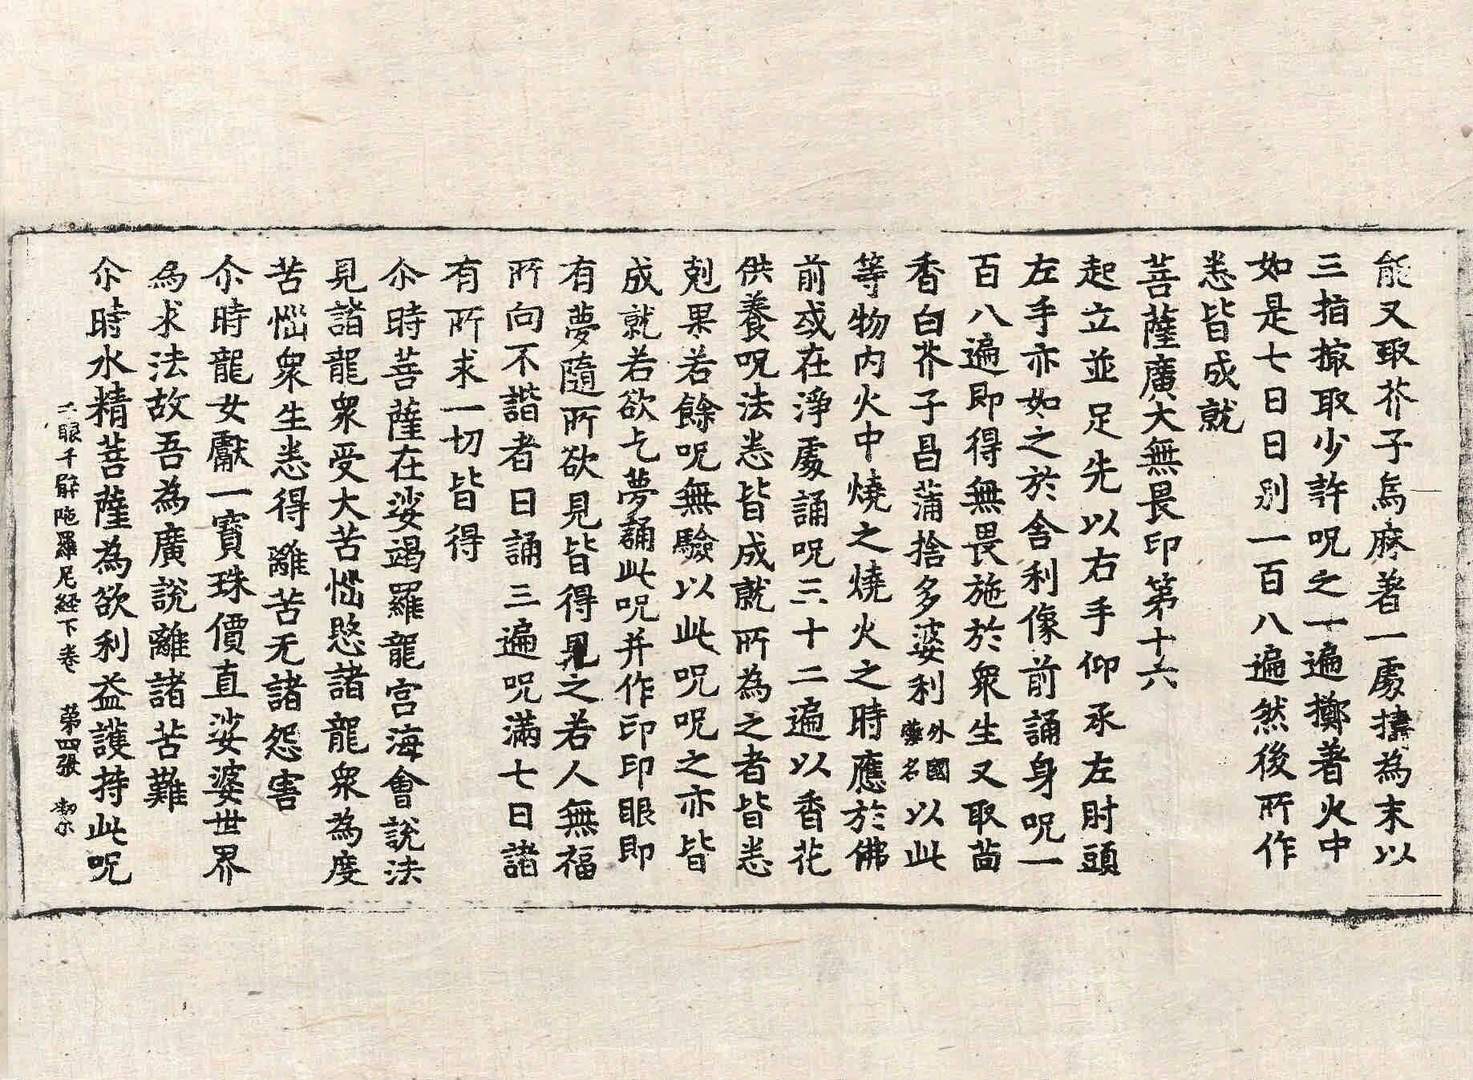 能又取芥子烏麻著一處擣為末以
三指撮取少許呪之一遍擲著火中
如是七日日別一百八遍然後所作
悉皆成就
菩薩廣大無畏印第十六
起立並足先以右手仰承左肘頭
左手亦如之於舍利像前誦身呪一
百八遍即得無畏施於衆生又取茴
香白芥子昌蒲捨多婆利外國藥名以此
等物內火中燒之燒火之時應於佛
前或在淨處誦呪三十二遍以香花
供養呪法悉皆成就所為之者皆悉
剋果若餘呪無驗以此呪呪之亦皆
成就若欲乞夢誦此呪并作印印眼即
有夢隨所欲見皆得見之若人無福
所向不諧者日誦三遍呪滿七日諸
有所求一切皆得
尒時菩薩在娑竭羅龍宮海會說法
見諸龍衆受大苦惱愍諸龍衆為度
苦惱衆生悉得離苦无諸怨害
尒時龍女獻一寶珠價直娑婆世界
為求法故吾為廣說離諸苦難
千眼千臂陁羅尼経下卷 第四張
尒時水精菩薩為欲利益護持此呪